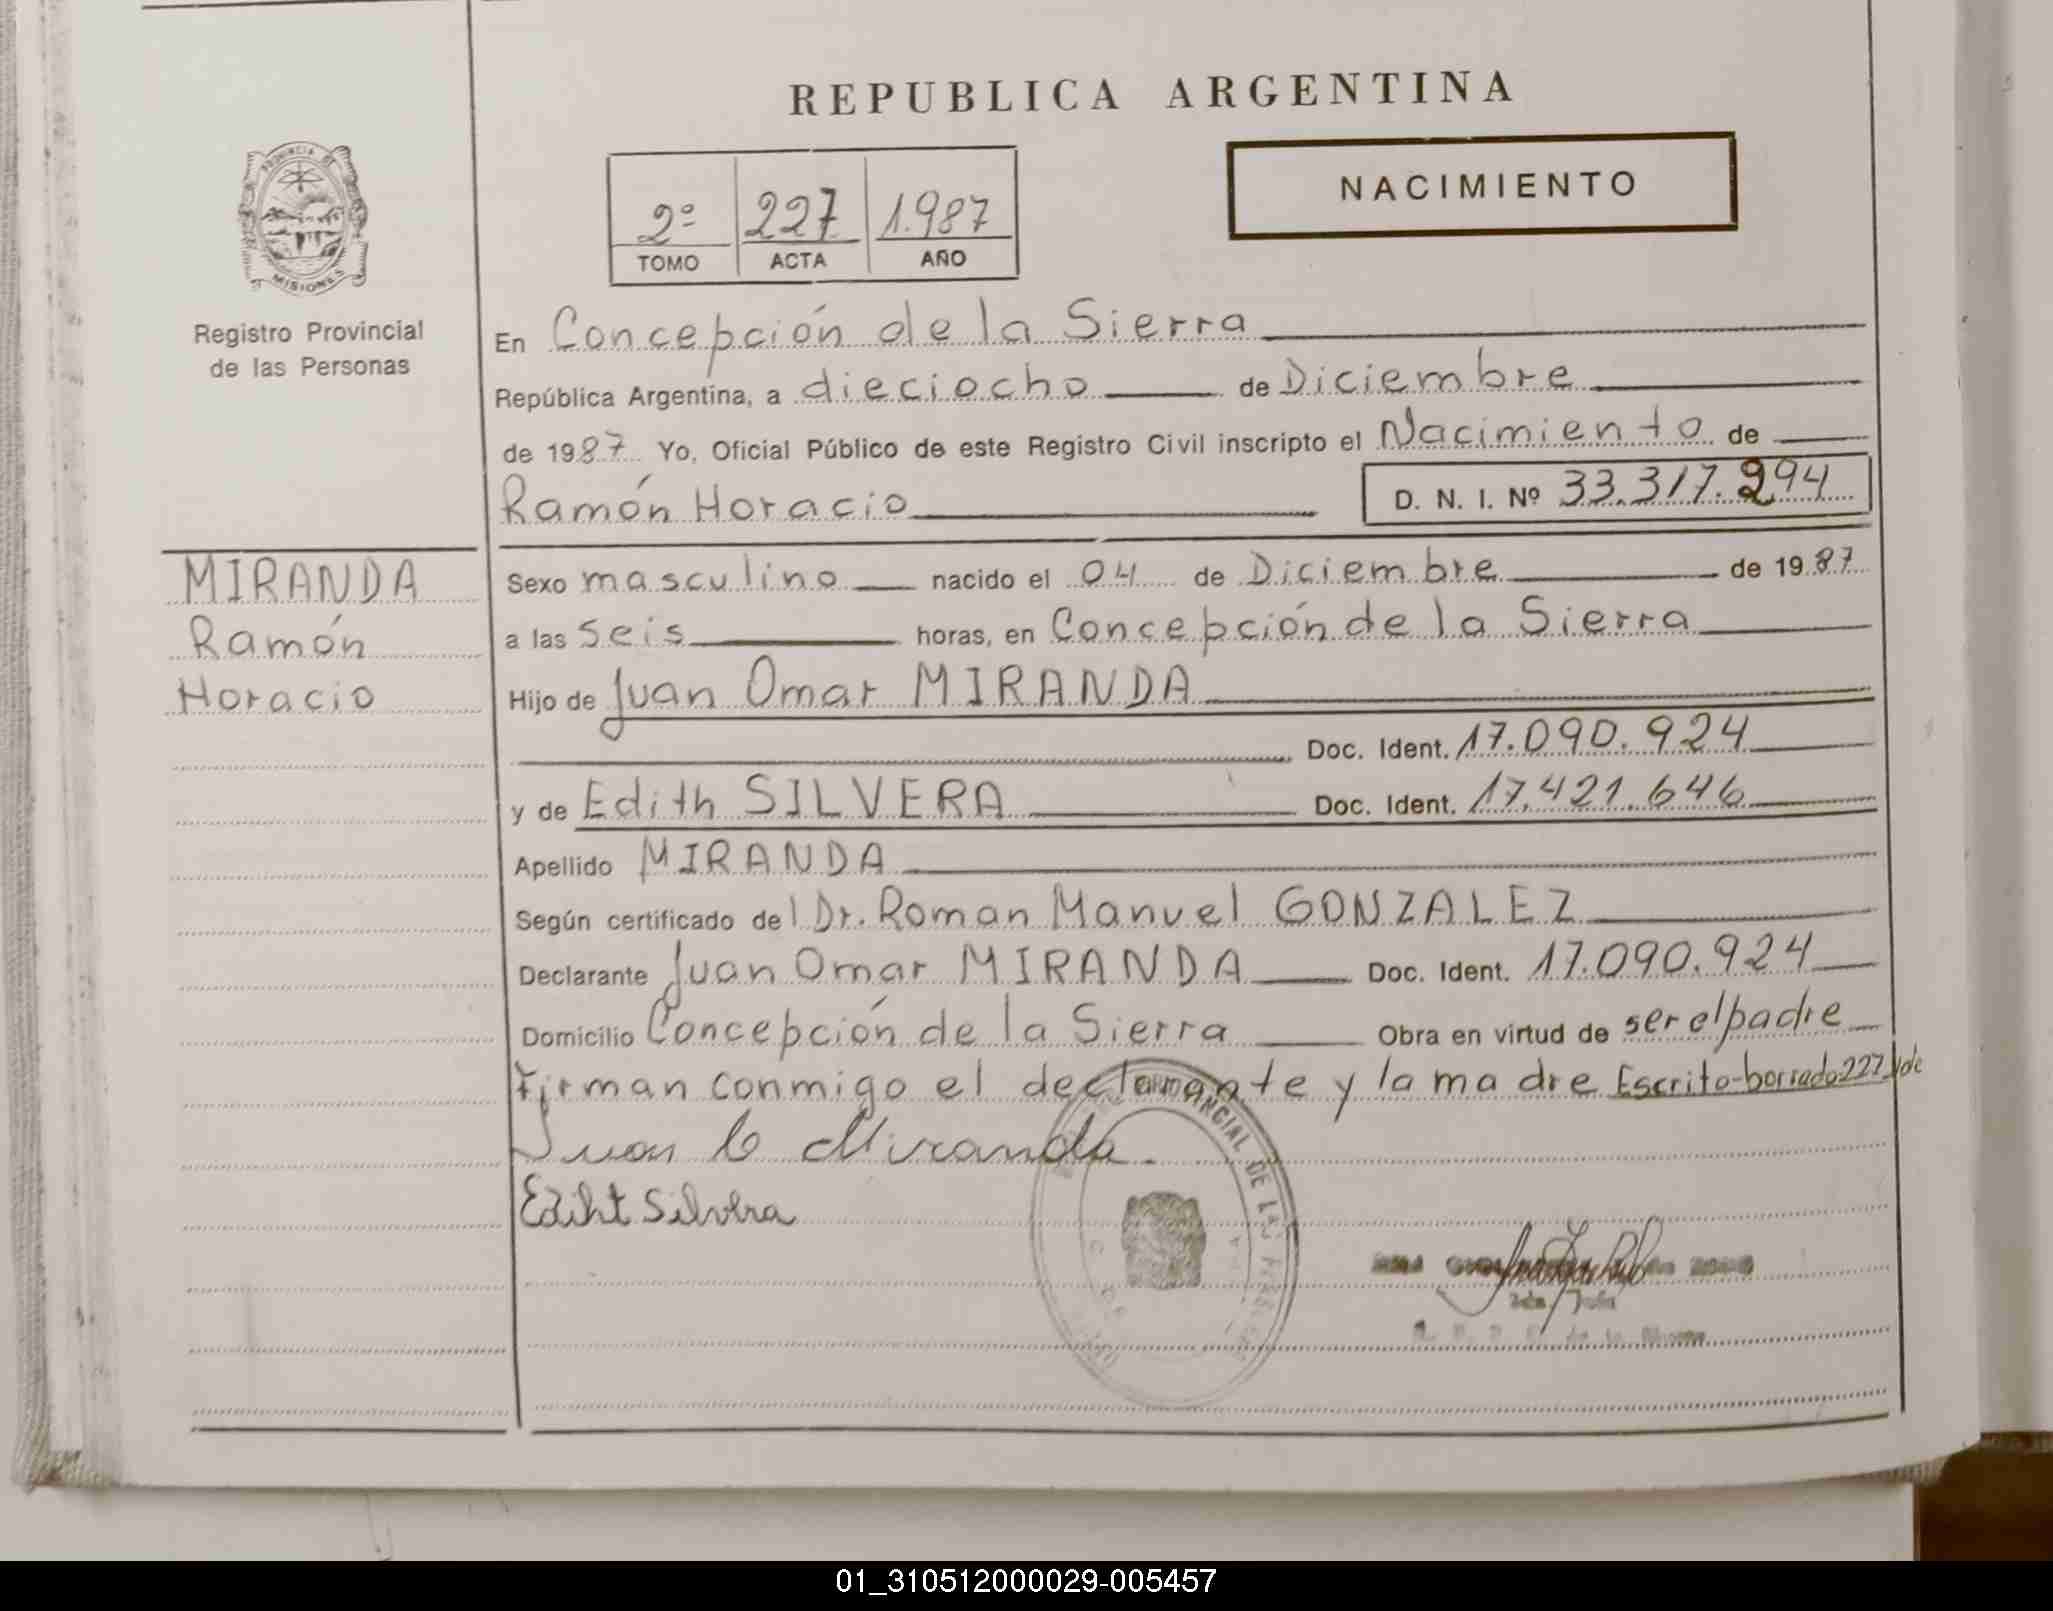 REPUBLICA ARGENTINA
PROVINCIA DE
MISIONES
Registro Provincial
de las Personas
2º 227 1.987
TOMO ACTA AÑO
NACIMIENTO
En Concepción de la Sierra
República Argentina, a dieciocho de Diciembre
de 1987 Yo, Oficial Público de este Registro Civil inscripto el Nacimiento de
Ramón Horacio D. N. I. Nº 33.317.294
MIRANDA
Ramón
Horacio
Sexo masculino nacido el 04 de Diciembre de 1987
a las seis horas, en Concepción de la Sierra
Hijo de Juan Omar MIRANDA
Doc. Ident. 17.090.924
y de Edith SILVERA Doc. Ident. 17.421.646
Apellido MIRANDA
Según certificado del Dr. Roman Manuel GONZALEZ
Declarante Juan Omar MIRANDA Doc. Ident. 17.090.924
Domicilio Concepción de la Sierra Obra en virtud de ser el padre
Firman conmigo el declarante y la madre Escrito-borrado 227
Juan O Miranda
Ediht Silvera
01_310512000029-005457